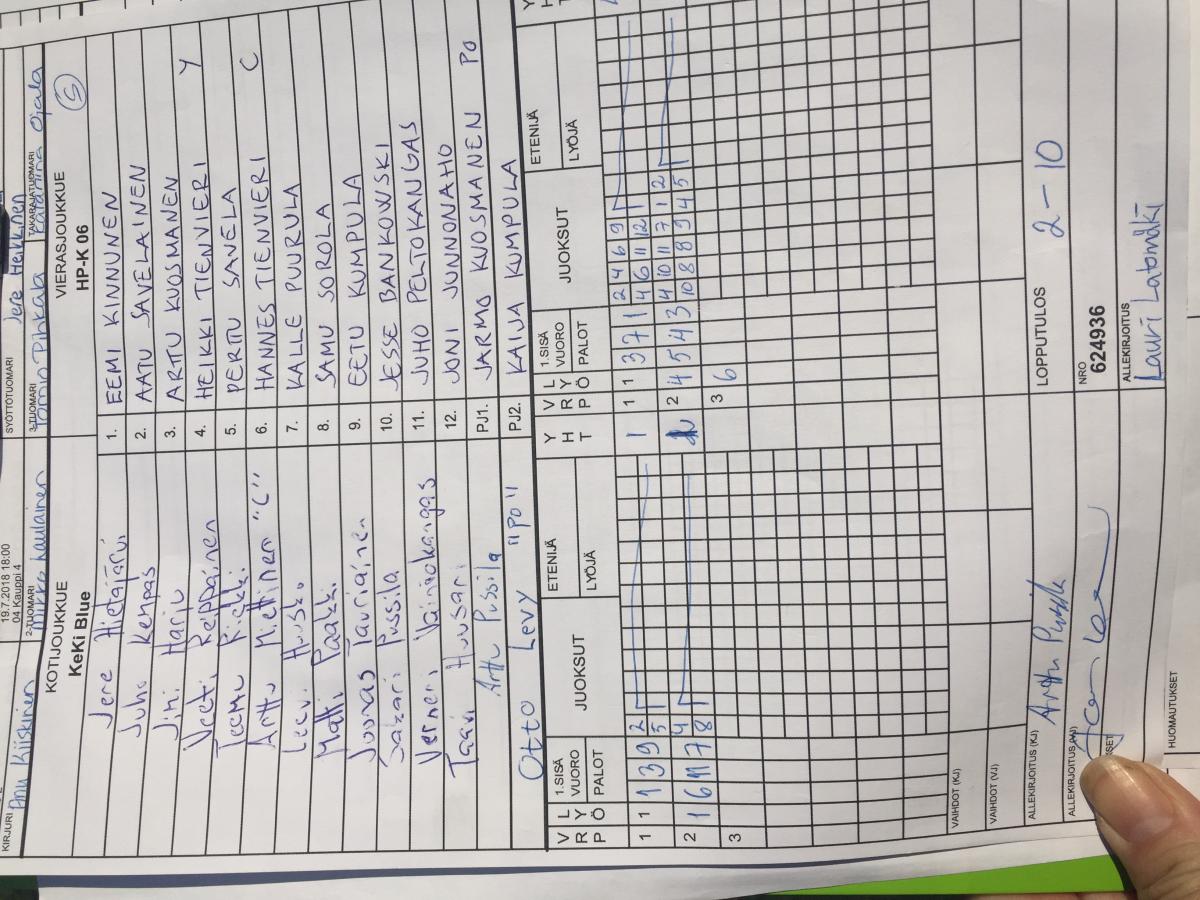 KIRJURI Anu Kiiskinen
19.7.2018 18:00
04 Kauppi 4
2-TUOMARI Mikko Laulainen
SYÖTTÖTUOMARI Jere Heikkinen
3-TUOMARI Pihkala
TAKARAJATUOMARI Katariina Ojala
KOTIJOUKKUE
KeKi Blue
VIERASJOUKKUE
HP-K 06
S
Jere Hietajärvi
Juho Kempas
Jiri Harju
Veeti Reppänen
Teemu Riekki
Arttu Miettinen "C"
Leevi Huusko
Matti Paakki
Joonas Tauriainen
Sakari Pussila
Verneri Väinökangas
Taavi Huusari
Arttu Pussila "PO"
Otto Levy
1. EEMI KINNUNEN
2. AATU SAVELAINEN
3. ARTTU KUOSMANEN
4. HEIKKI TIENVIERI Y
5. PERTTU SAVELA
6. HANNES TIENVIERI C
7. KALLE PUURULA
8. SAMU SOROLA
9. EETU KUMPULA
10. JESSE BANKOWSKI
11. JUHO PELTOKANGAS
12. JONI JUNNONAHO
PJ1. JARMO KUOSMANEN PO
PJ2. KAIJA KUMPULA
V R P
L Y Ö
1.SISÄ VUORO
PALOT
JUOKSUT
ETENIJÄ
LYÖJÄ
Y H T
V R P
L Y Ö
1.SISÄ VUORO
PALOT
JUOKSUT
ETENIJÄ
LYÖJÄ
Y H T
1 1 1 3 9 2
2
5
1
1 1 3 7 1
2 4 6 9
4 6 11 12
2 1 6 11 7 8
4
8
2 4 5 4 3
4 10 11 7 1 2
10 8 8 9 4 5
3
3 6
VAIHDOT (KJ)
VAIHDOT (VJ)
LOPPUTULOS 2-10
ALLEKIRJOITUS (KJ)
NRO
624936
ALLEKIRJOITUS (VJ)
ALLEKIRJOITUS
Lauri Latomäki
HUOMAUTUKSET